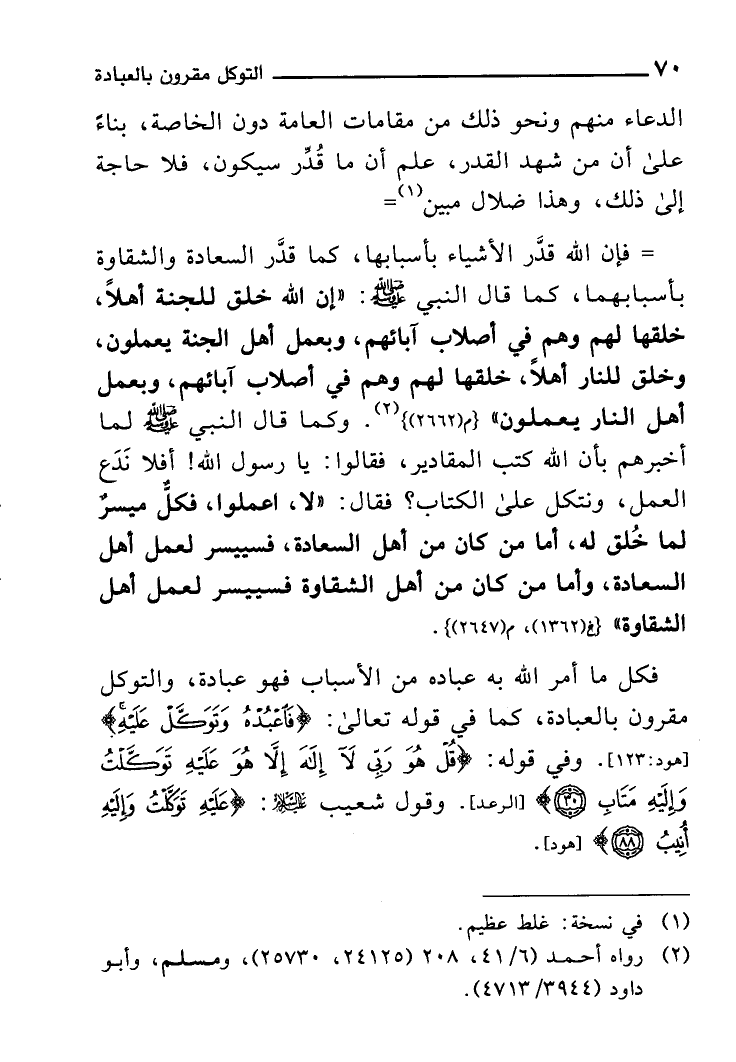 ٧٠ التوكل مقرون بالعبادة
الدعاء منهم ونحو ذلك من مقامات العامة دون الخاصة، بناءً
علىٰ أن من شهد القدر، علم أن ما قُدِّر سيكون، فلا حاجة
إلىٰ ذلك، وهذا ضلال مبين(١)=
= فإن الله قدَّر الأشياء بأسبابها، كما قدَّر السعادة والشقاوة
بأسبابهما، كما قال النبي ﷺ: «إن الله خلق للجنة أهلاً،
خلقها لهم وهم في أصلاب آبائهم، وبعمل أهل الجنة يعملون،
وخلق للنار أهلاً، خلقها لهم وهم في أصلاب آبائهم، وبعمل
أهل النار يعملون» {م(٢٦٦٢)}(٢). وكما قال النبي ﷺ لما
أخبرهم بأن الله كتب المقادير، فقالوا: يا رسول الله! أفلا نَدَع
العمل، ونتكل علىٰ الكتاب؟ فقال: «لا، اعملوا، فكلٌّ ميسرٌ
لما خُلق له، أما من كان من أهل السعادة، فسييسر لعمل أهل
السعادة، وأما من كان من أهل الشقاوة فسييسر لعمل أهل
الشقاوة» {خ(١٣٦٢)، م(٢٦٤٧)}.
فكل ما أمر الله به عباده من الأسباب فهو عبادة، والتوكل
مقرون بالعبادة، كما في قوله تعالىٰ: ﴿فَٱعْبُدْهُ وَتَوَكَّلْ عَلَيْهِۚ﴾
[هود:١٢٣]. وفي قوله: ﴿قُلْ هُوَ رَبِّى لَآ إِلَٰهَ إِلَّا هُوَ عَلَيْهِ تَوَكَّلْتُ
وَإِلَيْهِ مَتَابِ ﴿٣٠﴾﴾ [الرعد]. وقول شعيب عليه السلام: ﴿عَلَيْهِ تَوَكَّلْتُ وَإِلَيْهِ
أُنِيبُ ﴿٨٨﴾﴾ [هود].
(١) في نسخة: غلط عظيم.
(٢) رواه أحمد (٦/٤١، ٢٠٨ (٢٤١٢٥، ٢٥٧٣٠)، ومسلم، وأبو
داود (٣٩٤٤/٤٧١٣).